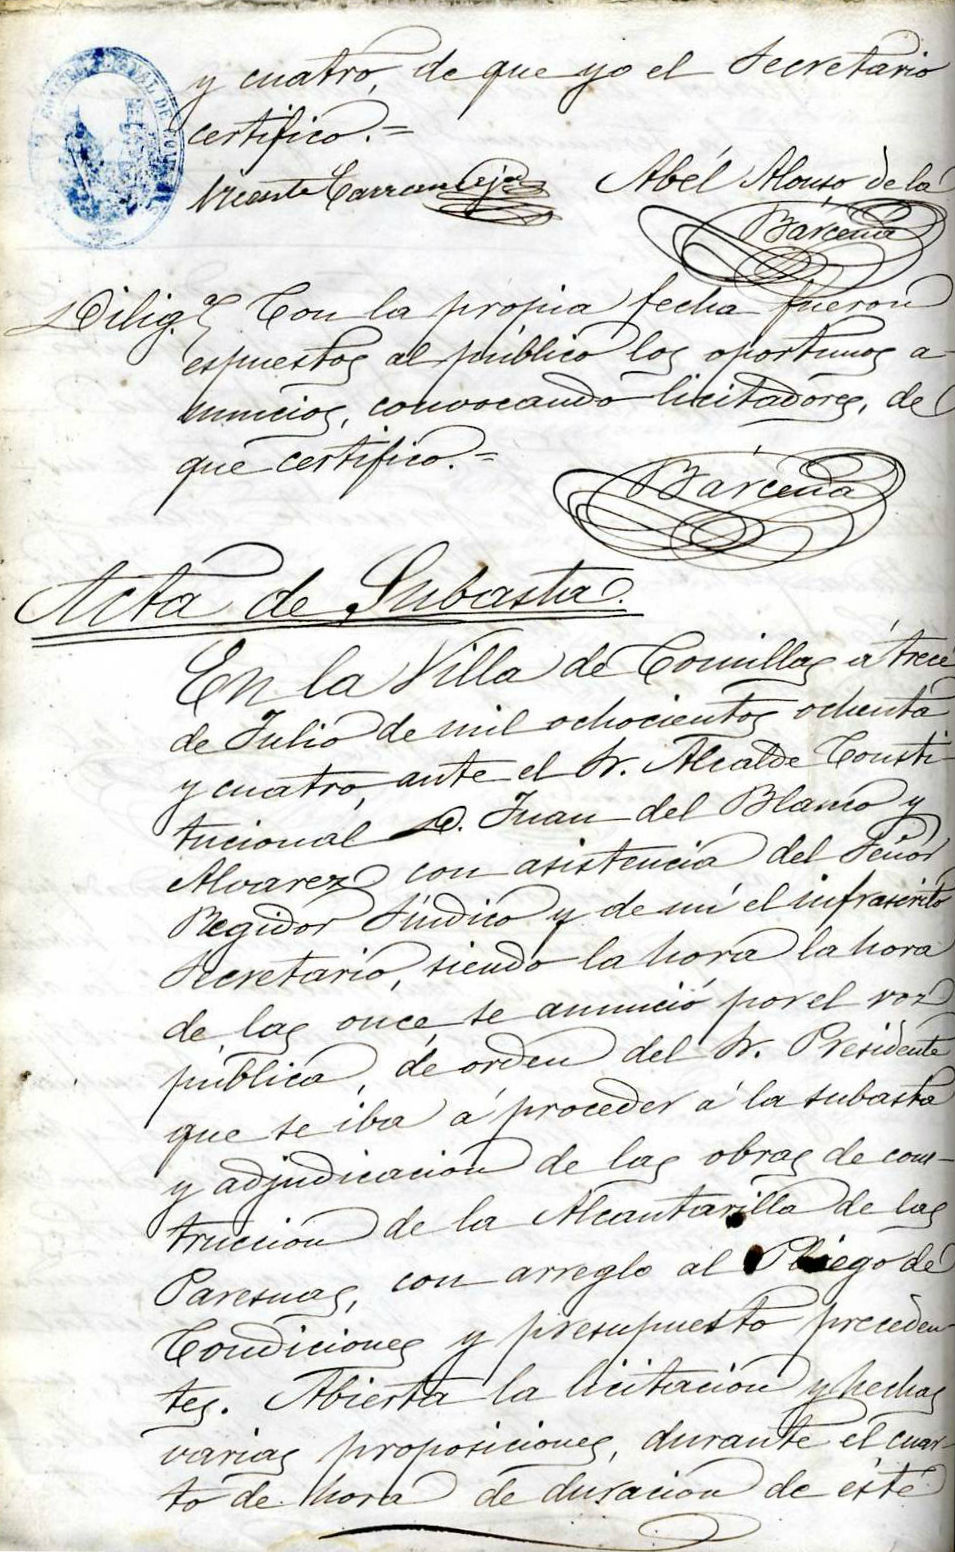 y cuatro, de que yo el Secretario
certifico.=
Vicente Carranceja Abél Alonso de la
Bárcena
Dilig.ª Con la propia fecha fueron
espuestos al público los oportunos a-
nuncios, convocando licitadores, de
que certifico.=
Bárcena
Acta de Subasta.
En la Villa de Comillas á trece
de Julio de mil ochocientos ochenta
y cuatro, ante el Sr. Alcalde Consti-
tucional D. Juan del Blanco y
Alvarez con asistencia del Señor
Regidor Síndico y de mí el infrascrito
Secretario, siendo la hora la hora
de las once, se anunció por el voz
pública, de orden del Sr. Presidente
que se iba á proceder á la subasta
y adjudicacion de las obras de cons-
truccion de la Alcantarilla de las
con arreglo al Pliego de
Condiciones y presupuesto preceden-
tes. Abierta la licitacion y hechas
varias proposiciones, durante el cuar-
to de hora de duracion de éste